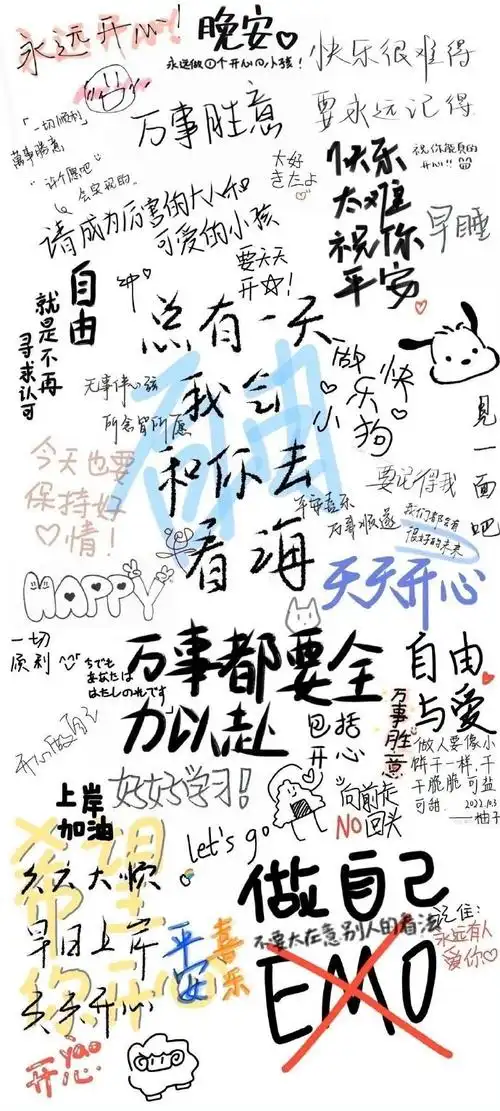 永远开心!
晚安
永远做①个开心的小孩!
快乐很难得
要永远记得
「一切顺利」
万事胜意
萬事勝意,
“许个愿吧”
会实现的.
请成为厉害的大人和
可爱的小孩
大好
きだよ
快乐
太难
祝你
平安
祝你能真的
开心!!
早睡
自由
就是不再
寻求认可
要天天
开☆!
总有一天
我会
和你去
看海
自由
做快
乐
小狗
见一面吧
无事绊心弦
所念皆所愿
今天也要
保持好
心情!
要记得我
平安喜乐
万事顺遂
我们都会有
很好的未来
HAPPY
天天开心
一切
顺利
万事都要全
力以赴
包括
开心
自由
与爱
万事胜意
做人要像小
饼干一样,干
干脆脆可盐
可甜.
2022.1.03
——柚子
好好学习!
上岸
加油
Let's go
向前走
NO回头
希望
你开心
天天大顺
早日上岸
天天开心
平安
喜乐
做自己
不要太在意别人的看法
EMO
记住:
永远有人
爱你
yào
开心